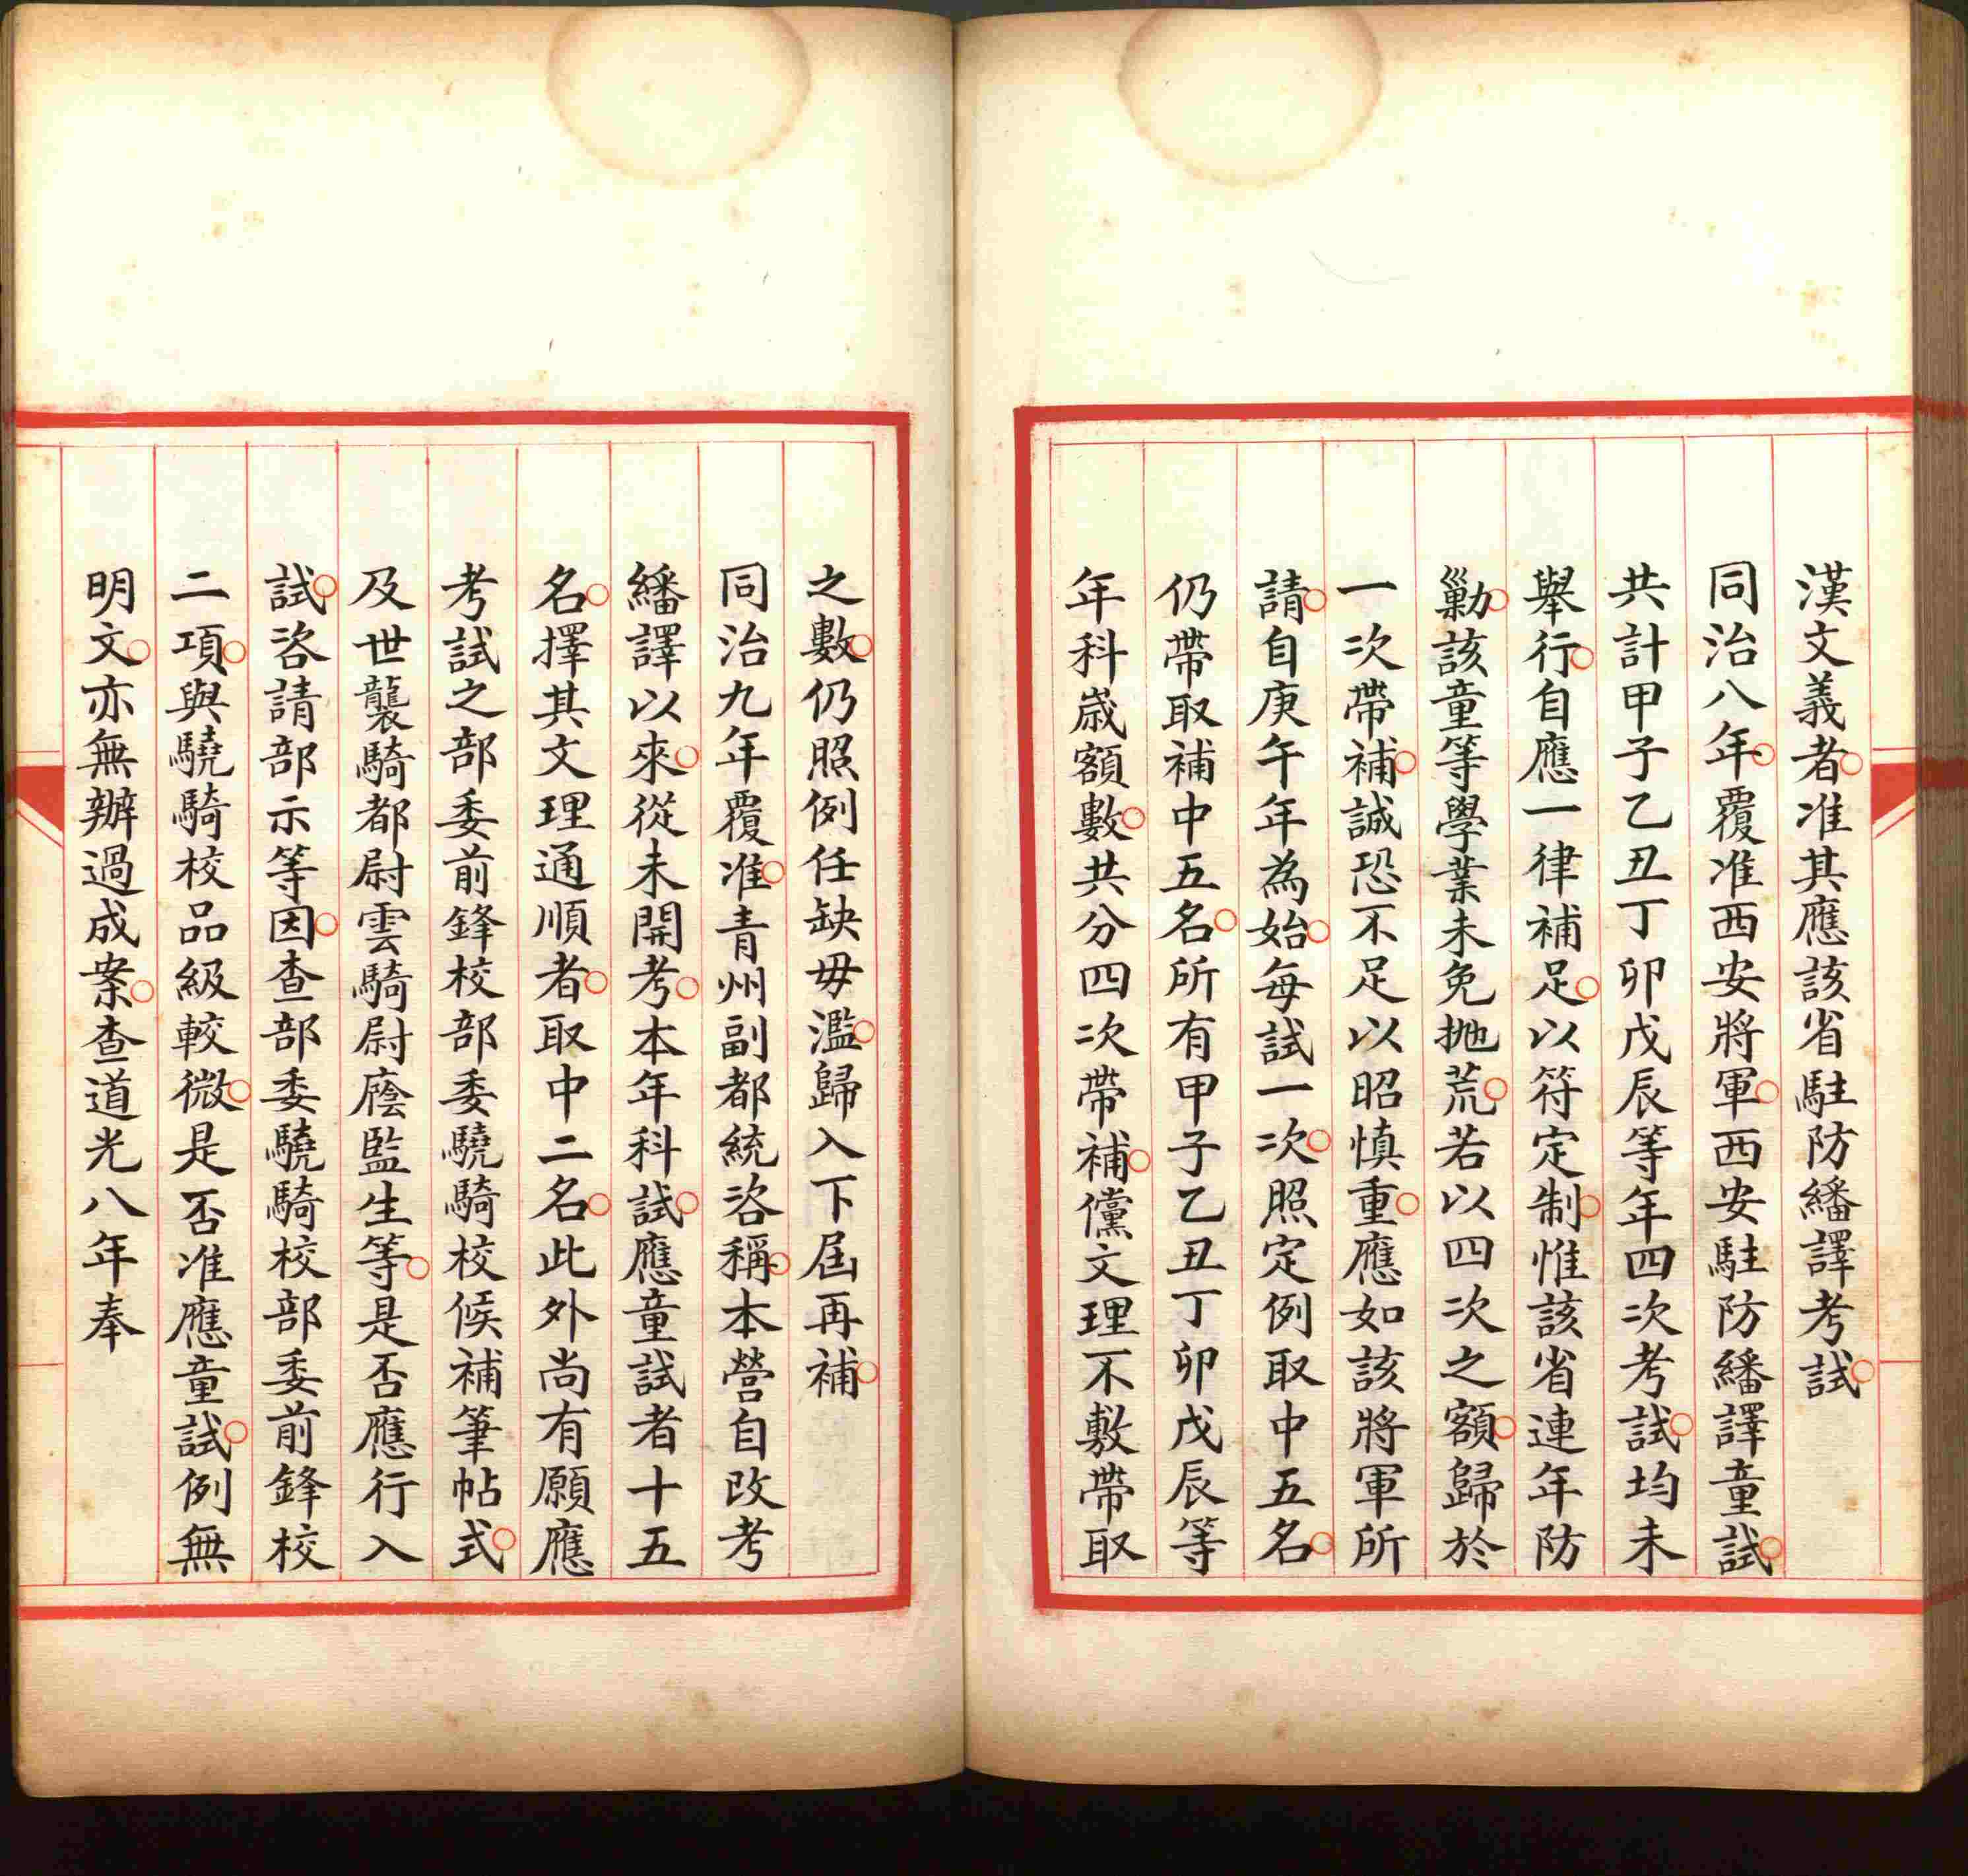 漢文義者准其應該省駐防繙譯考試
同治八年覆准西安將軍西安駐防繙譯童試
共計甲子乙丑丁卯戊辰等年四次考試均未
舉行自應一律補足以符定制惟該省連年防
勦該童等學業未免拋荒若以四次之額歸於
一次帶補誠恐不足以昭慎重應如該將軍所
請自庚午年為始每試一次照定例取中五名
仍帶取補中五名所有甲子乙丑丁卯戊辰等
年科歲額數共分四次帶補儻文理不敷帶取
之數仍照例任缺毋濫歸入下屆再補
同治九年覆准青州副都統咨稱本營自改考
繙譯以來從未開考本年科試應童試者十五
名擇其文理通順者取中二名此外尚有願應
考試之部委前鋒校部委驍騎校候補筆帖式
及世襲騎都尉雲騎尉廕監生等是否應行入
試咨請部示等因查部委驍騎校部委前鋒校
二項與驍騎校品級較微是否准應童試例無
明文亦無辦過成案查道光八年奉